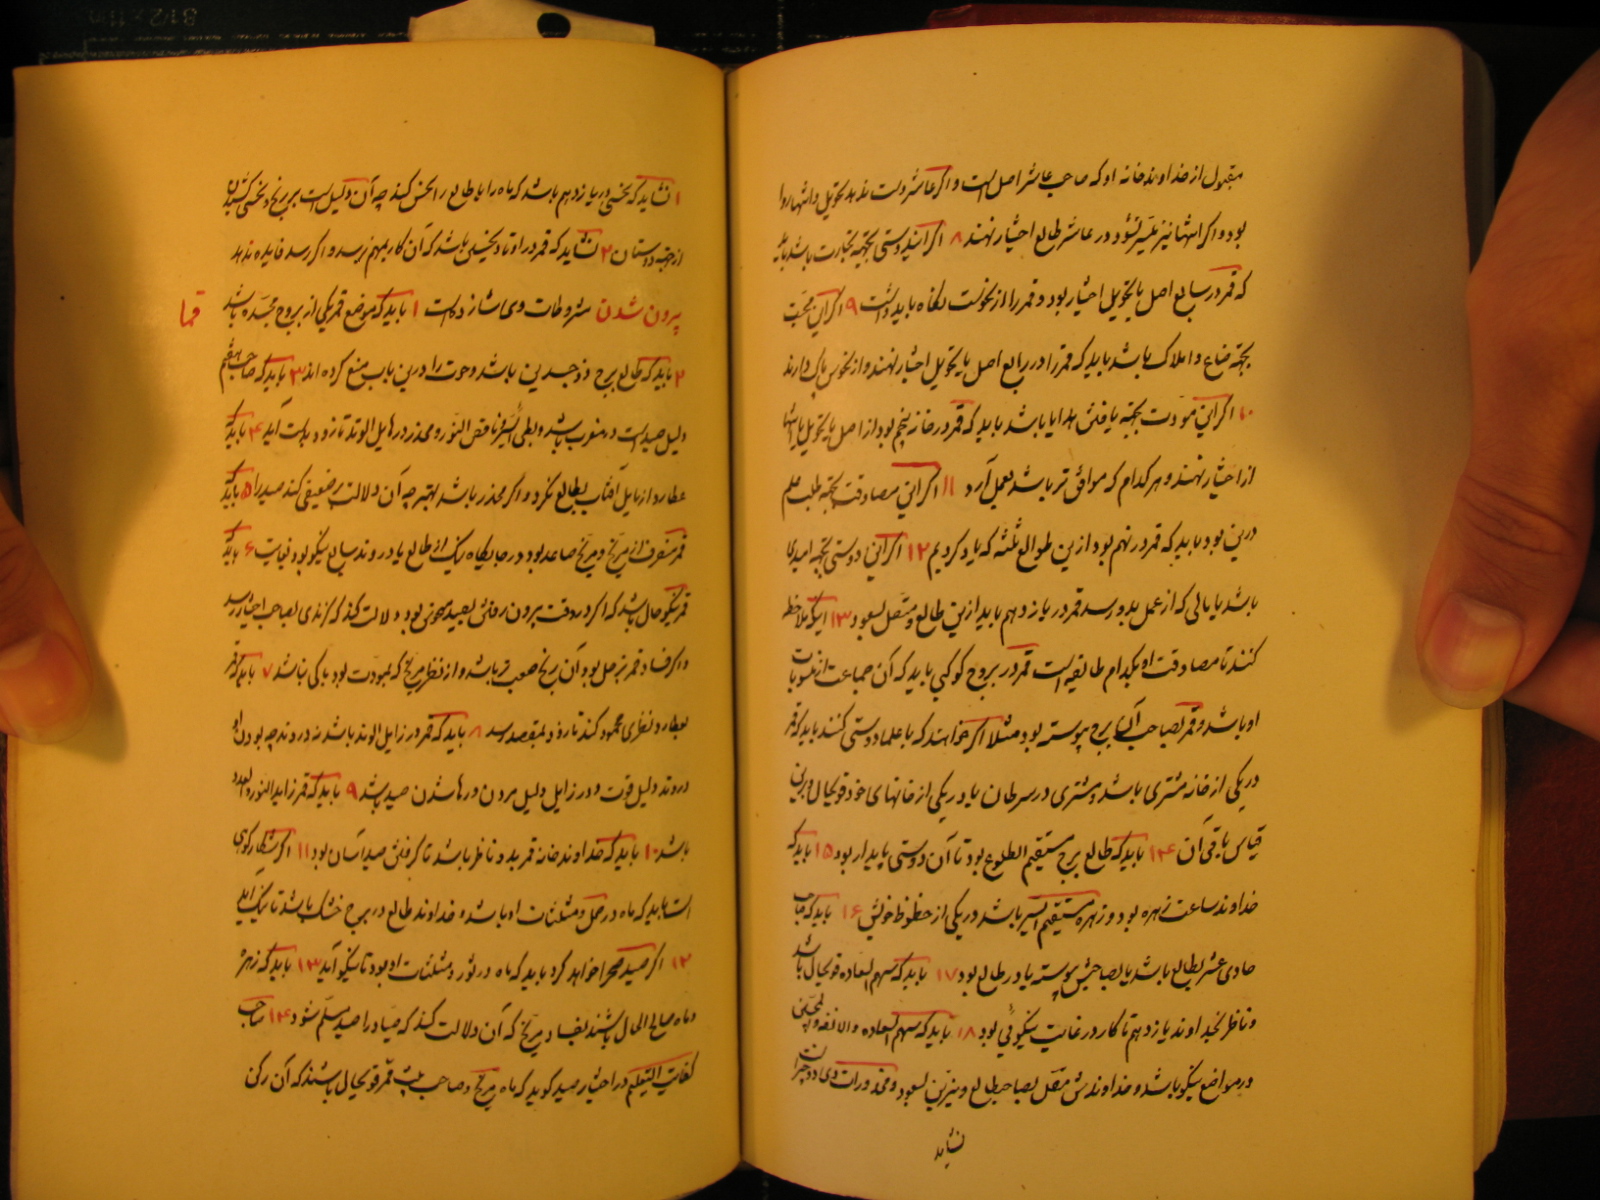 مقبول از خداوند خانه او که صاحب عاشر اصل است و اگر عاشر دست ندهد تحویل و انتها روا
بود و اگر انتها نیز میسر نشود در عاشر طالع اختیار نهند ۸ اگر این دوستی بجهة تجارت باشد باید
که قمر در سابع اصل یا تحویل اختیار بود و قمر را از نحوست نگاه باید داشت ۹ اگر این محبت
بجهة ضیاع و املاک باشد باید که قمر را در رابع اصل یا تحویل اختیار نهند و از نحوس پاک دارند
۱۰ اگر این مودت بجهة یافتن هدایا باشد باید که قمر در خانه پنجم بود از اصل یا تحویل یا انتها
از اختیار نهند و هر کدام که موافق تر باشد بعمل آرد ۱۱ اگر این مصادقت بجهة طلب علم
دین بود باید که قمر در نهم بود ازین طوالع ثلثه که یاد کردیم ۱۲ اگر این دوستی بجهة امیدی
باشد یا مالی که از عمل بدو رسد قمر در یازدهم باید ازین طالع و متصل بسعود ۱۳ اینکه ملاحظه
کنند تا مصادقت او بکدام طایفه است قمر در بروج کوکبی باید که آن جماعت از منسوبات
او باشد و قمر بصاحب آن برج پیوسته بود مثلا اگر خواهند که با علما دوستی کنند باید که قمر
در یکی از خانه مشتری باشد و مشتری در سرطان یا در یکی از خانهای خود قوی حال و برین
قیاس باقی آن ۱۴ باید که طالع برج مستقیم الطلوع بود تا آن دوستی پایدار بود ۱۵ باید که
خداوند ساعت زهره بود و زهره مستقیم السیر باشد در یکی از حظوظ خویش ۱۶ باید که صاحب
حادی عشر بطالع باشد یا بصاحبش پیوسته یا در طالع بود ۱۷ باید که سهم السعاده قوی حال باشد
و ناظر بخداوند یازدهم تا کار در غایت نیکوئی بود ۱۸ باید که سهم السعاده و الالفه و المحبه
در مواضع نیکو باشد و خداوندش متصل بصاحب طالع و نیرین بسعود و محذورات وی
نشاید
۱ نشاید که نحسی در یازدهم باشد که ماه را یا طالع را نحس کند چه آن دلیل است بر رنج و سختی کشیدن
از جهة دوستان ۲ نشاید که قمر در اوتاد نحسی باشد که آن کار بمهم نرسد و اگر رسد فایده ندهد
بیرون شدن مشروطات وی شانزده است ۱ باید که موضع قمر یکی از بروج مجسده باشد
۲ باید که طالع برج ذو جسدین باشد و حوت را درین باب منع کرده اند ۳ باید که صاحب هفتم
دلیل صید است و منحوب باشد و بطی السیر ناقص النور و منحدر در مایل الوتد تا زود بدست آید ۴ باید که
عطارد از مایل آفتاب بطالع نگرد و اگر منحدر باشد بهتر چه آن دلالت بر ضعیفی کند صید را ۵ باید که
قمر منصرف از مریخ و مریخ صاعد بود در جایگاه نیک از طالع یا در وتد سابع نیکو بود بغایت ۶ باید که
قمر نیکو حال باشد که اگر در وقت بیرون رفتن بصید منحوس بود دلالت کند که گزندی بصاحب اختیار رسد
و اگر فساد قمر بزحل بود آن رنج صعب تر باشد و از نظر مریخ که بمودت بود باکی نباشد ۷ باید که قمر
بعطارد نظری محمود کند تا زود بمقصد رسد ۸ باید که قمر در زایل الوتد باشد نه در وتد چه بودن او
در وتد دلیل قوت و در زایل دلیل مردن و رها شدن صید باشد ۹ باید که قمر زاید النور و العدد
باشد ۱۰ باید که خداوند خانه قمر بدو ناظر باشد تا گرفتن صید آسان بود ۱۱ اگر شکار کوهی
است باید که ماه در حمل و مثلثات او باشد و خداوند طالع در برج خشک باشد تا نیک آید
۱۲ اگر صید صحرا خواهد کرد باید که ماه در ثور و مثلثات او بود تا نیکو آید ۱۳ باید که زهره
و ماه صالح الحال باشند بعید از مریخ که آن دلالت کند که صیاد را صید مسلم شود ۱۴ صاحب
کفایت التعلیم در اختیار صید گوید که ماه و مریخ و صاحب بیت قمر قوی حال باشند که آن رکن